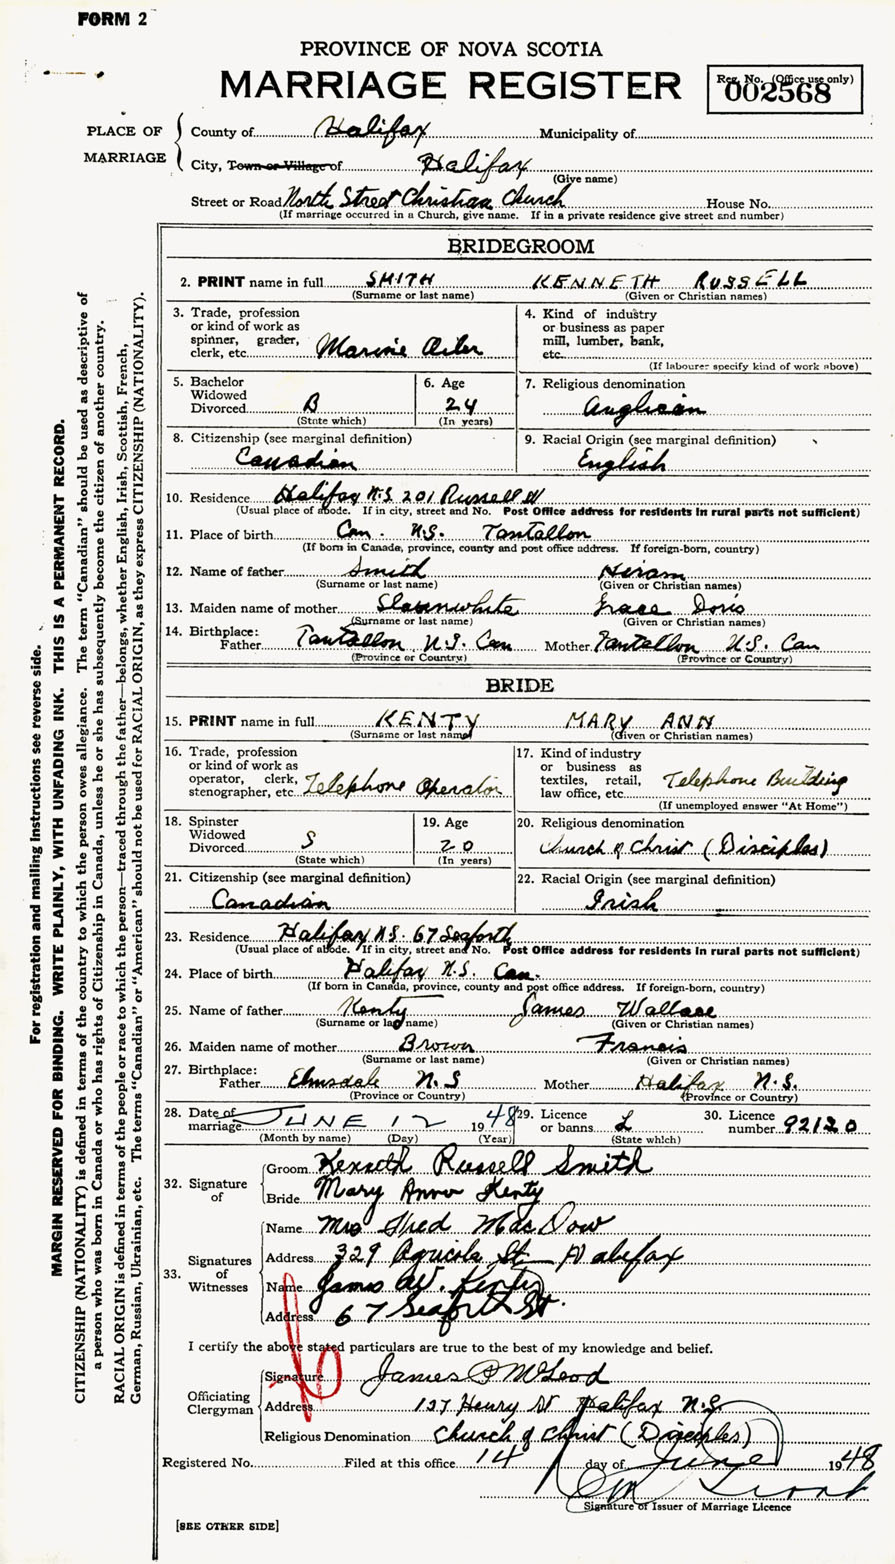 FORM 2
PROVINCE OF NOVA SCOTIA
MARRIAGE REGISTER
Reg. No. (Office use only)
002568
PLACE OF MARRIAGE
County of Halifax Municipality of
City, Town or Village of Halifax
(Give name)
Street or Road North Street Christian Church House No.
(If marriage occurred in a Church, give name. If in a private residence give street and number)
BRIDEGROOM
2. PRINT name in full SMITH KENNETH RUSSELL
(Surname or last name) (Given or Christian names)
3. Trade, profession or kind of work as spinner, grader, clerk, etc. Marine Oiler
4. Kind of industry or business as paper mill, lumber, bank, etc.
(If labourer specify kind of work above)
5. Bachelor Widowed Divorced B
(State which)
6. Age 24
(In years)
7. Religious denomination Anglican
8. Citizenship (see marginal definition) Canadian
9. Racial Origin (see marginal definition) English
10. Residence Halifax N.S. 201 Russell
(Usual place of abode. If in city, street and No. Post Office address for residents in rural parts not sufficient)
11. Place of birth Can. N.S. Tantallon
(If born in Canada, province, county and post office address. If foreign-born, country)
12. Name of father Smith Hiram
(Surname or last name) (Given or Christian names)
13. Maiden name of mother Slaunwhite Grace Doris
(Surname or last name) (Given or Christian names)
14. Birthplace: Father Tantallon N.S. Can Mother Tantallon N.S. Can
(Province or Country) (Province or Country)
BRIDE
15. PRINT name in full KENTY MARY ANN
(Surname or last name) (Given or Christian names)
16. Trade, profession or kind of work as operator, clerk, stenographer, etc. Telephone Operator
17. Kind of industry or business as textiles, retail, law office, etc. Telephone Building
(If unemployed answer "At Home")
18. Spinster Widowed Divorced S
(State which)
19. Age 20
(In years)
20. Religious denomination Church of Christ (Disciples)
21. Citizenship (see marginal definition) Canadian
22. Racial Origin (see marginal definition) Irish
23. Residence Halifax N.S. 67 Seaforth
(Usual place of abode. If in city, street and No. Post Office address for residents in rural parts not sufficient)
24. Place of birth Halifax N.S. Can.
(If born in Canada, province, county and post office address. If foreign-born, country)
25. Name of father Kenty James Wallace
(Surname or last name) (Given or Christian names)
26. Maiden name of mother Brown Francis
(Surname or last name) (Given or Christian names)
27. Birthplace: Father Elmsdale N.S Mother Halifax N.S.
(Province or Country) (Province or Country)
28. Date of marriage JUNE 12 1948
(Month by name) (Day) (Year)
29. Licence or banns L
(State which)
30. Licence number 92120
32. Signature of
Groom Kenneth Russell Smith
Bride Mary Ann Kenty
33. Signatures of Witnesses
Name Mrs Fred MacDow
Address 329 Agricola St. Halifax
Name James W. Kenty
Address 67 Seaforth St.
I certify the above stated particulars are true to the best of my knowledge and belief.
Officiating Clergyman
Signature James P McLeod
Address 127 Henry St Halifax N.S.
Religious Denomination Church of Christ (Disciples)
Registered No. Filed at this office 14 day of June 1948
Signature of Issuer of Marriage Licence
[SEE OTHER SIDE]
For registration and mailing instructions see reverse side.
MARGIN RESERVED FOR BINDING. WRITE PLAINLY, WITH UNFADING INK. THIS IS A PERMANENT RECORD.
CITIZENSHIP (NATIONALITY) is defined in terms of the country to which the person owes allegiance. The term "Canadian" should be used as descriptive of
a person who was born in Canada or who has rights of Citizenship in Canada, unless he or she has subsequently become the citizen of another country.
RACIAL ORIGIN is defined in terms of the people or race to which the person—traced through the father—belongs, whether English, Irish, Scottish, French,
German, Russian, Ukrainian, etc. The terms "Canadian" or "American" should not be used for RACIAL ORIGIN, as they express CITIZENSHIP (NATIONALITY).